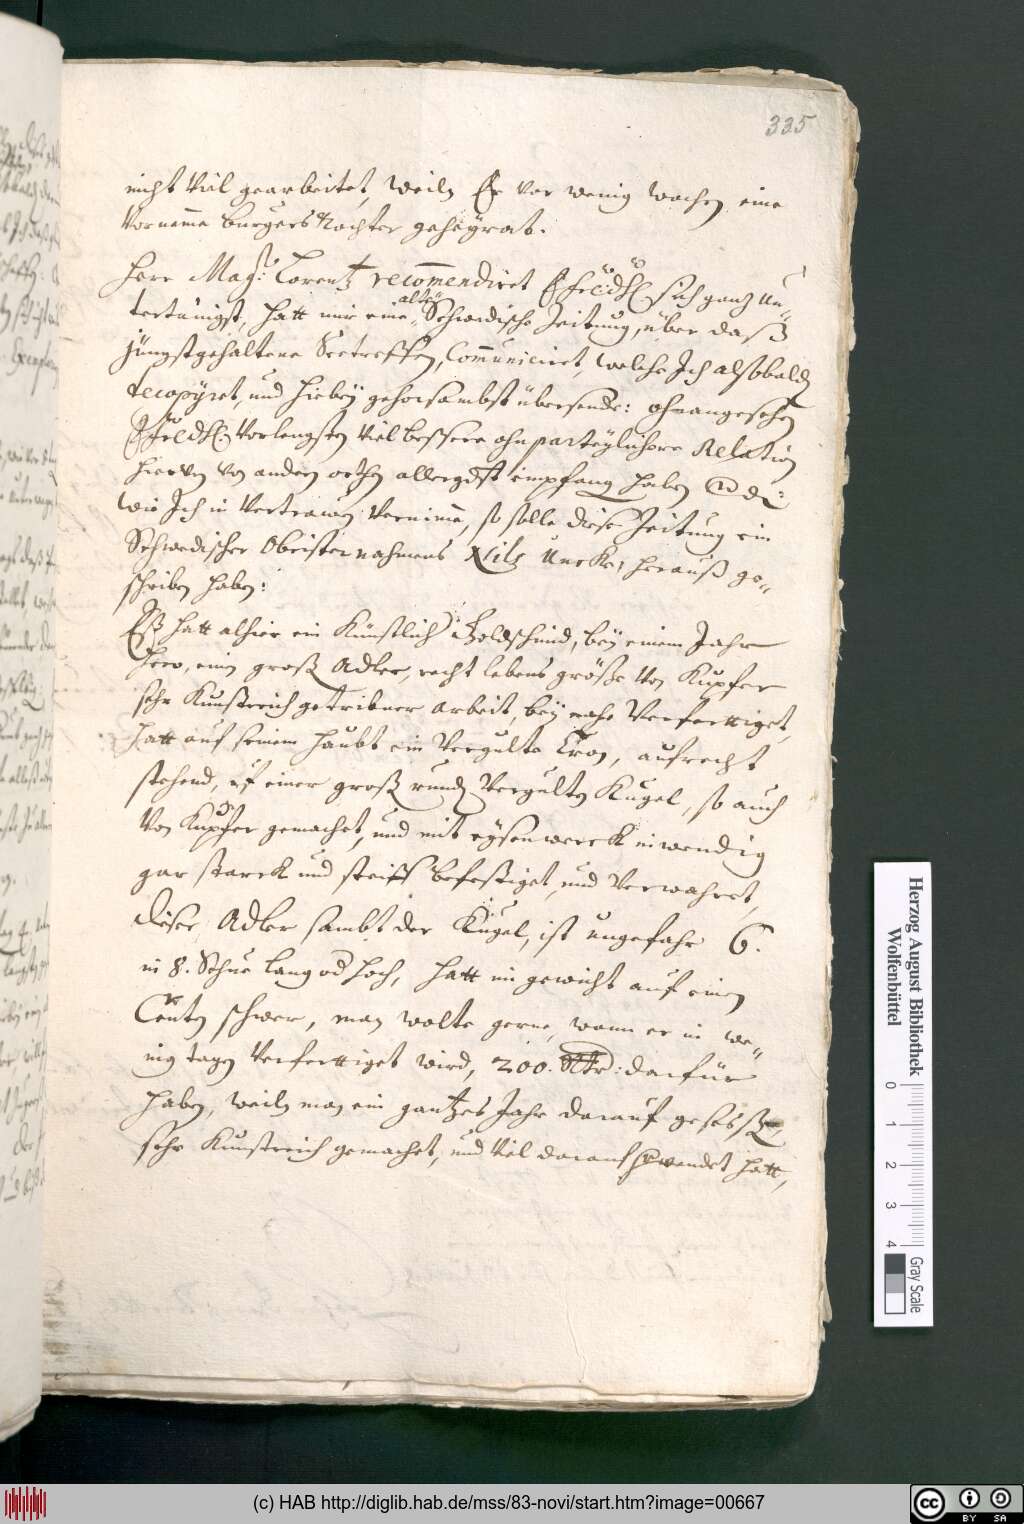 335
nicht Viel gearbeitet, weiln Er vor wenig wochen eine
Vorneme burgers Tochter geheÿrat.
Herr Mag: Lorentz recommendiret E fr: dh: sich ganz un-
tertänigst, hatt mir eine alte Schwedische Zeitung, über daß
jüngstgehaltene Seetreffen, Communiciret, welche Ich alsobalden
decopÿret, und hiebeÿ gehorsambst übersende: ohnangesehen
E fr: dh: Vorlengsten Viel bessere ohnparteÿlichere Relation
hiervon von andern orthen allergdst empfang haben
wie Ich in Vertrawen Vernimme, so solle diese Zeitung ein
Schwedischer Obrister nahmens Nils herauß ge-
schriben haben:
Eß hatt alhier ein Künstlich Goldschmid, beÿ einem Jahr
hero, einen groß Adler, recht lebens größe von Kupfer
sehr Kunstreich getribner arbeit, beÿ nahe Verferttiget,
hatt auf seinem haubt ein Vergulte Cron, aufrecht
stehend, uf einer groß runden Vergulten Kugel, so auch
von Kupfer gemachet, und mit eÿsenwerck inwendig
gar starck und steiff befestiget, und Verwahret,
dieser Adler sambt der Kugel, ist ungefahr 6.
in 8. Schue lang od hoch, hatt im gewicht auf einen
Centn schwer, man wolte gerne, wann er in we-
nig tagen Verferttiget wird, 200. Rthr: darfür
haben, weiln man ein gantzes Jahr darauf gesessen,
sehr Kunstreich gemachet, und Viel darauf gewendet hatt,
Herzog August Bibliothek
Wolfenbüttel
0 1 2 3 4
Gray Scale
(c) HAB http://diglib.hab.de/mss/83-novi/start.htm?image=00667
cc BY SA